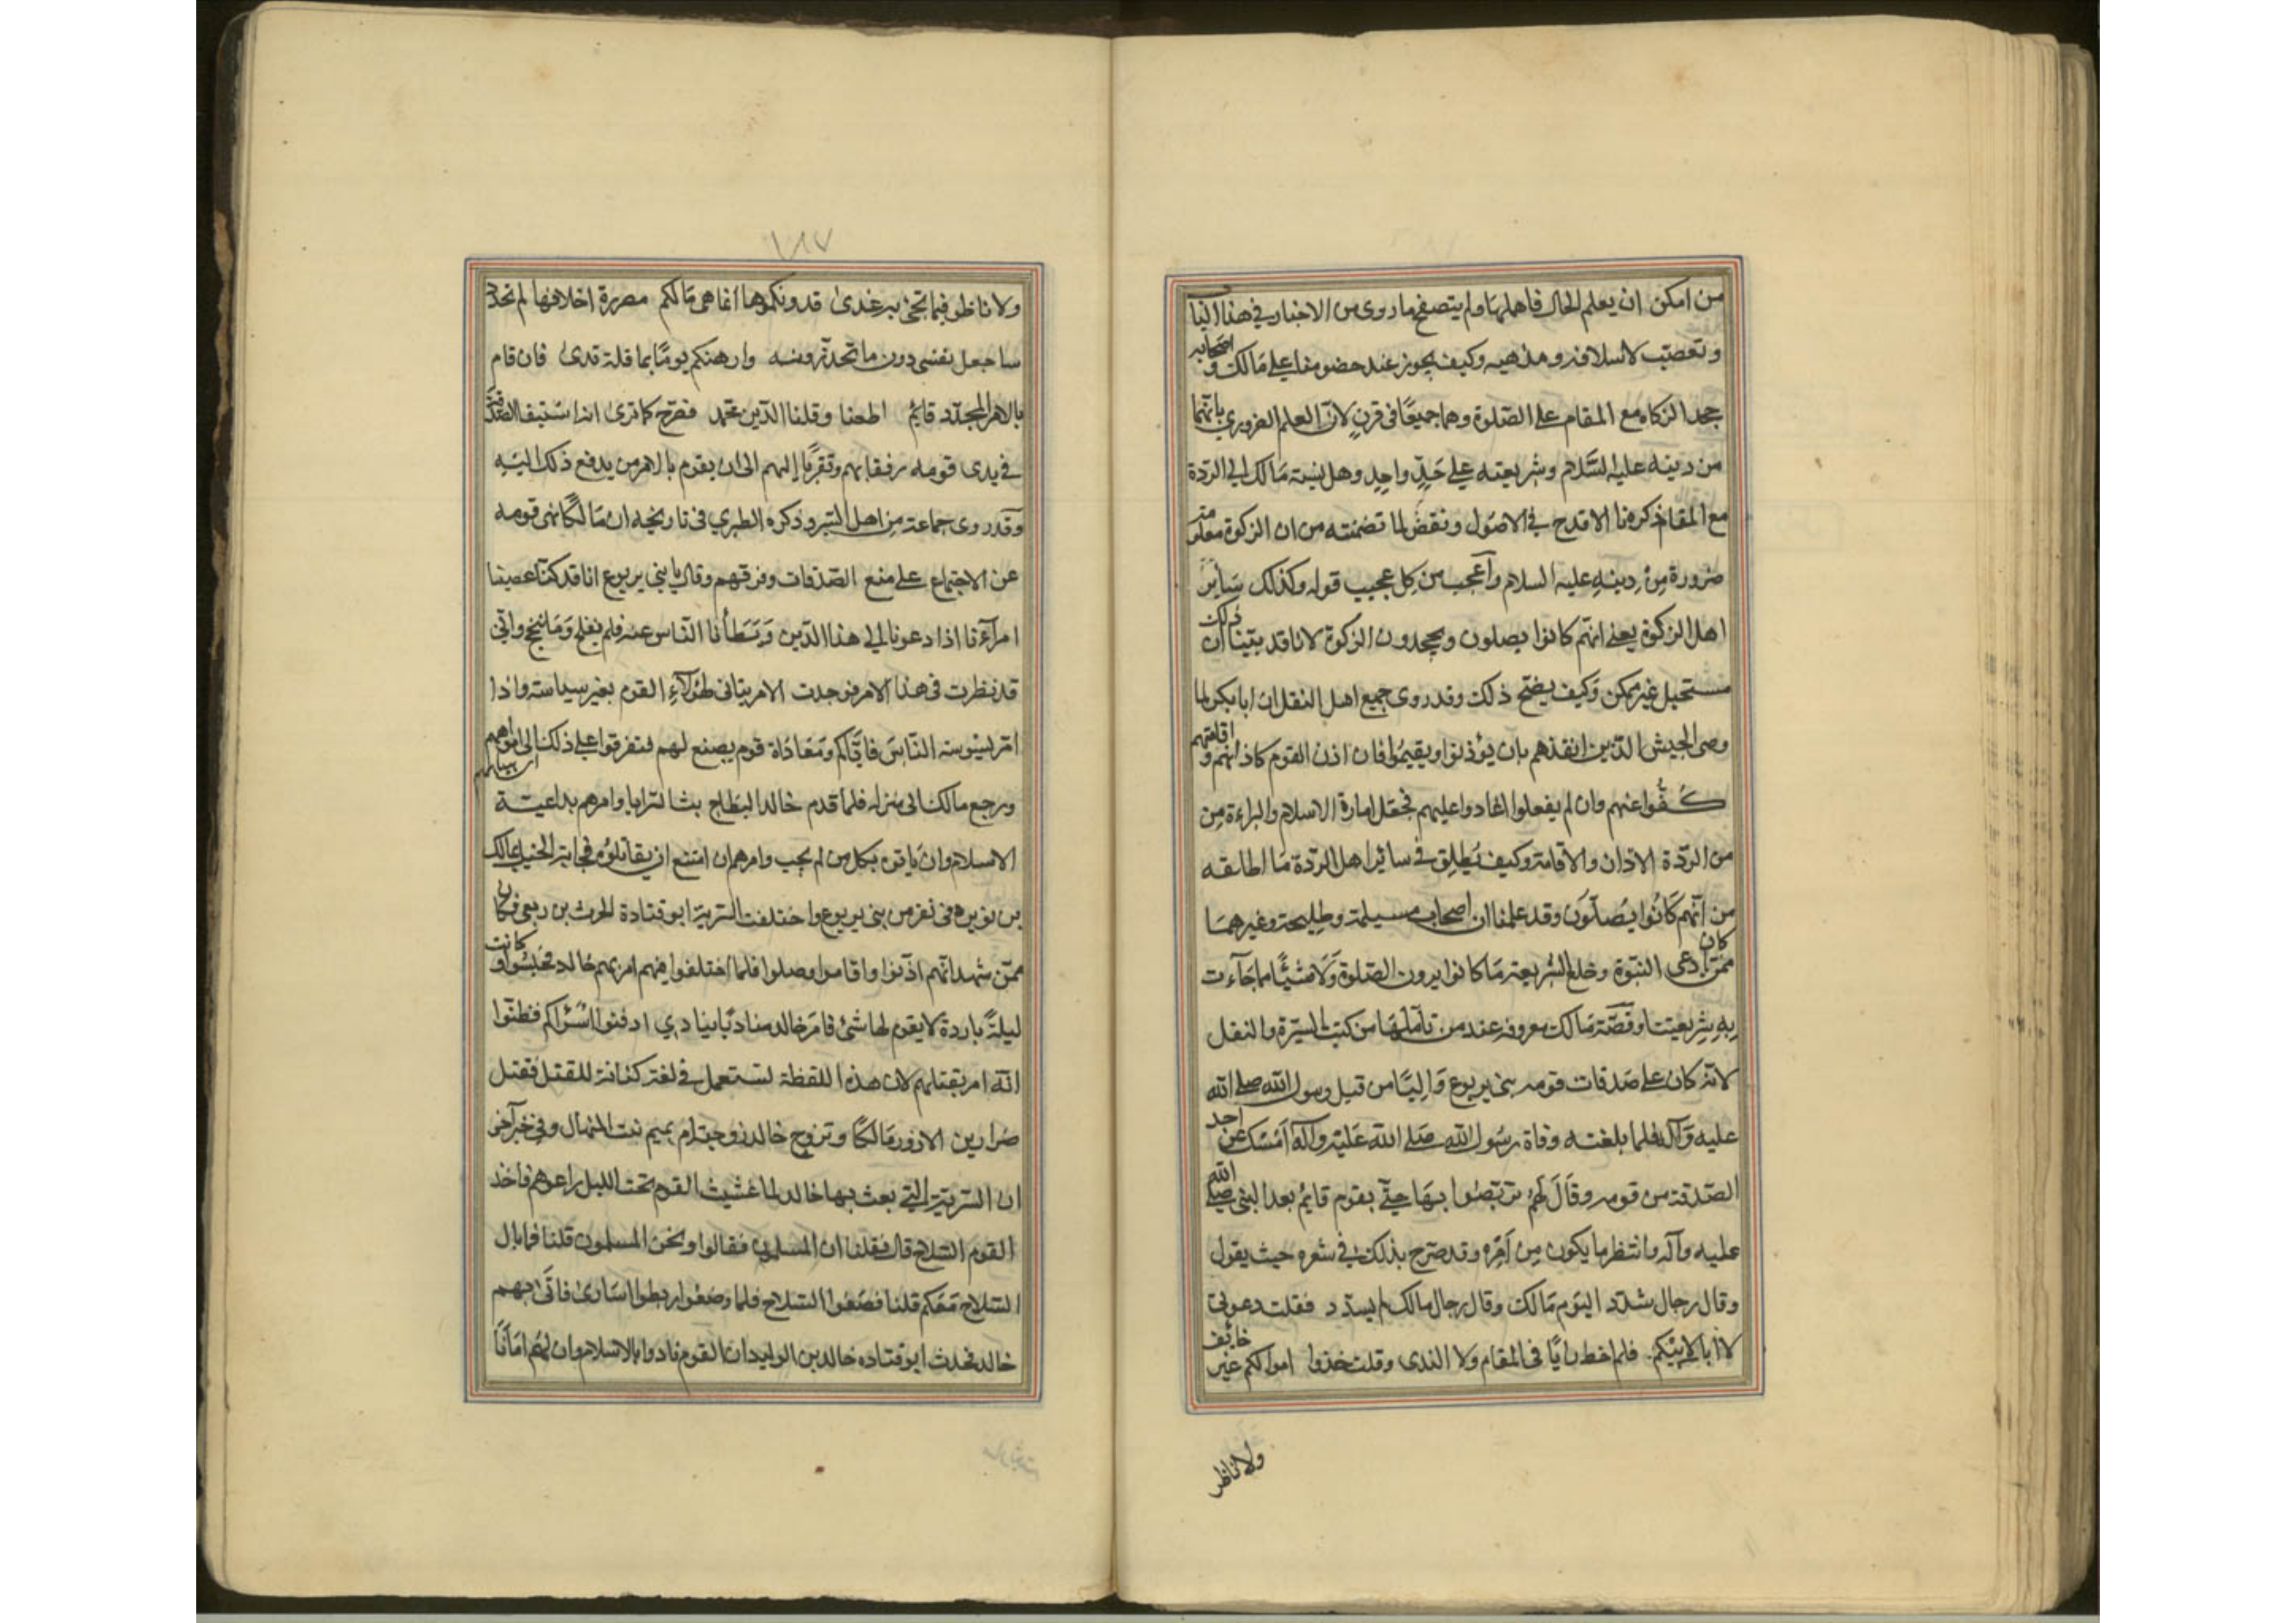 من امكن ان يعلم الحال فاهلها ولم يتصفح ما روى من الاخبار في هذا الباب
وتعصب لاسلافه ومذهبه وكيف يجوز عند خصومنا على مالك واصحابه
جحد الزكاه مع المقام على الصلوة وهما جميعًا فى قرنٍ لانّ العلم الضرورى بانهما
من دينه عليه السّلام وشريعته على حدٍّ واحدٍ وهل نسبة مالك الى الردة
مع المقام ذكرنا الا قدح في الاصول ونقض لما تضمنته من ان الزكوة معلومة
ضرورة من دينه عليه السلام وأعجب من كل عجيب قوله وكذلك سائر
اهل الزكوة يعنى انهم كانوا يصلون ويجحدون الزكوة لانا قد بيّنا ان ذلك
مستحيل غير ممكن وكيف يصح ذلك وقد روى جميع اهل النقل ان ابا بكر لما
وصى الجيش الذين انفذهم بان يؤذنوا ويقيموا فان اذن القوم كاذانهم واقامتهم
كفّوا عنهم وان لم يفعلوا اغادوا عليهم فجعل امارة الاسلام والبراءة من
من الردّة الاذان والاقامة وكيف يُطلق في سائر اهل الردّة ما اطلقه
من انهم كانوا يصلّون وقد علمنا ان اصحاب مسيلمة وطليحة وغيرهما
ممن كان ادعى النبوّة وخلع الشريعة ما كانوا يرون الصلوة ولا شيئًا مما جآءت
به شريعتنا وقصّة مالك معروفه عند من تأملها من كتب السيرة والنقل
لانه كان على صدقات قومه بنى يربوع واليًا من قبل رسول الله صلى الله
عليه وآله فلما بلغته وفاة رسول الله صلى الله عليه وآله امسك عن اخذ
الصدقة من قومه وقال لهم تربصوا بها حتى يقوم قائم بعد النبى صلى الله
عليه وآله وانتظر ما يكون من أمره وقد صرح بذلك في شعره حيث يقول
وقال رجال شدّد اليوم مالك وقال رجال مالك لم يسدّد فقلت دعونى
لا أبا لابيكم فلم اخط رايًا فى المقام ولا الندى وقلت خذوا اموالكم غير خائف
ولا ناظر
١٨٧
ولا ناظر فيما تجئ به غدى قدونكموها انما هى مالكم مصررة اخلافها لم تجدد
ساجعل نفسى دون ما تحذرونه وارهنكم يومًا بما قلته قدى فان قام
بالامر المجدّد قائم اطعنا وقلنا الدّين محمد فصرح كما ترى انه استبقى الصدقة
في يدى قومه رفقا بهم وتقربًا إليهم الى ان يقوم بالامر من يدفع ذلك اليه
وقد روى جماعة من اهل السير وذكره الطبري في تاريخه ان مالكا نهى قومه
عن الاجتماع على منع الصدقات وفرقهم وقال يا بنى يربوع انا قد كنّا عصينا
امرآءنا اذا دعونا الى هذا الدّين وبطأنا النّاس عنه فلم نفلح وما ننجح وانّى
قد نظرت فى هذا الامر فوجدت الامر يتأتى لهؤلاء القوم بغير سياسة واذا
امر ليسوسه الناس فايّاكم ومعاداة قوم يصنع لهم فتفرقوا على ذلك الى اموالهم
ورجع مالك الى منزله فلما قدم خالد البطاح بث السرايا وامرهم بداعية
الاسلام وان ياتوه بكل من لم يجب وامرهم ان امتنع ان يقاتلوه فجاءته الخيل بمالك
بن نويره فى نفر من بنى يربوع واختلفت السرية ابو قتادة الحرث بن ربعى فكان
ممّن شهد انهم اذّنوا واقاموا وصلوا فلما اختلفوا فيهم امر بهم خالد فحبسوا وكانت
ليلة باردة لا يقوم لها شئ فامر خالد مناديًا ينادي ادفئوا اسراكم فظنّوا
انّه امر بقتلهم لان هذه اللفظة تستعمل في لغة كنانة للقتل فقتل
ضرار بن الازور مالكًا وتزوج خالد زوجته ام تميم بنت المنهال وفي خبر آخر
ان السرية التى بعث بها خالد لما غشيت القوم تحت الليل راعوهم فاخذ
القوم السلاح قال فقلنا انا المسلمون فقالوا ونحن المسلمون قلنا فما بال
السلاح معكم قلنا فضعوا السلاح فلما وضعوا ربطوا اسارى فاتى بهم
خالد فحدث ابو قتاده خالد بن الوليد ان القوم نادوا بالاسلام وان لهم امانًا